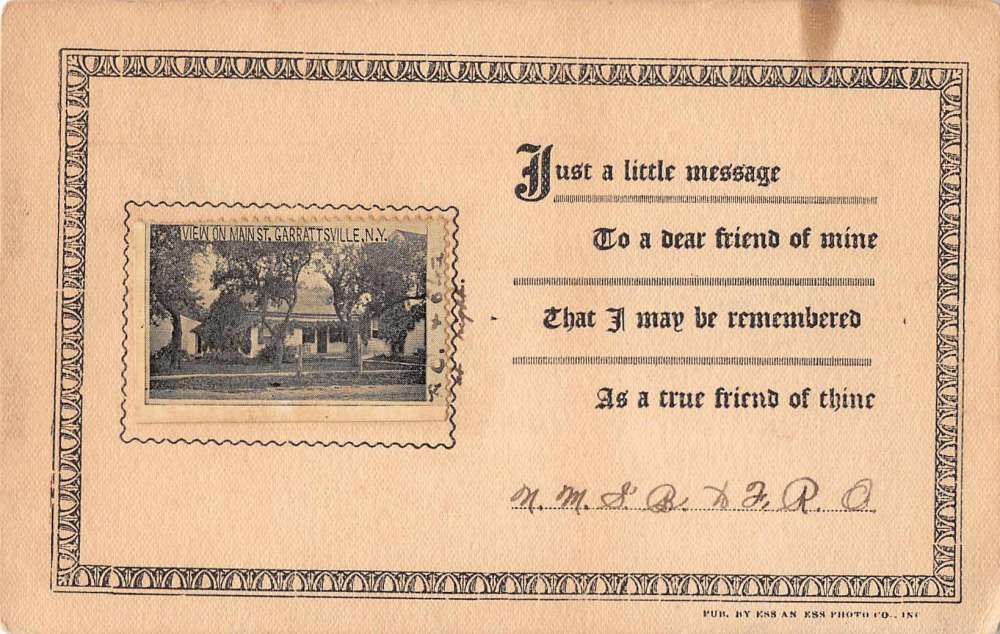 VIEW ON MAIN ST. GARRATTSVILLE, N.Y.
Just a little message
To a dear friend of mine
That I may be remembered
As a true friend of thine
N. M. S. B. D F. R. O
PUB. BY ESS AN ESS PHOTO CO., INC